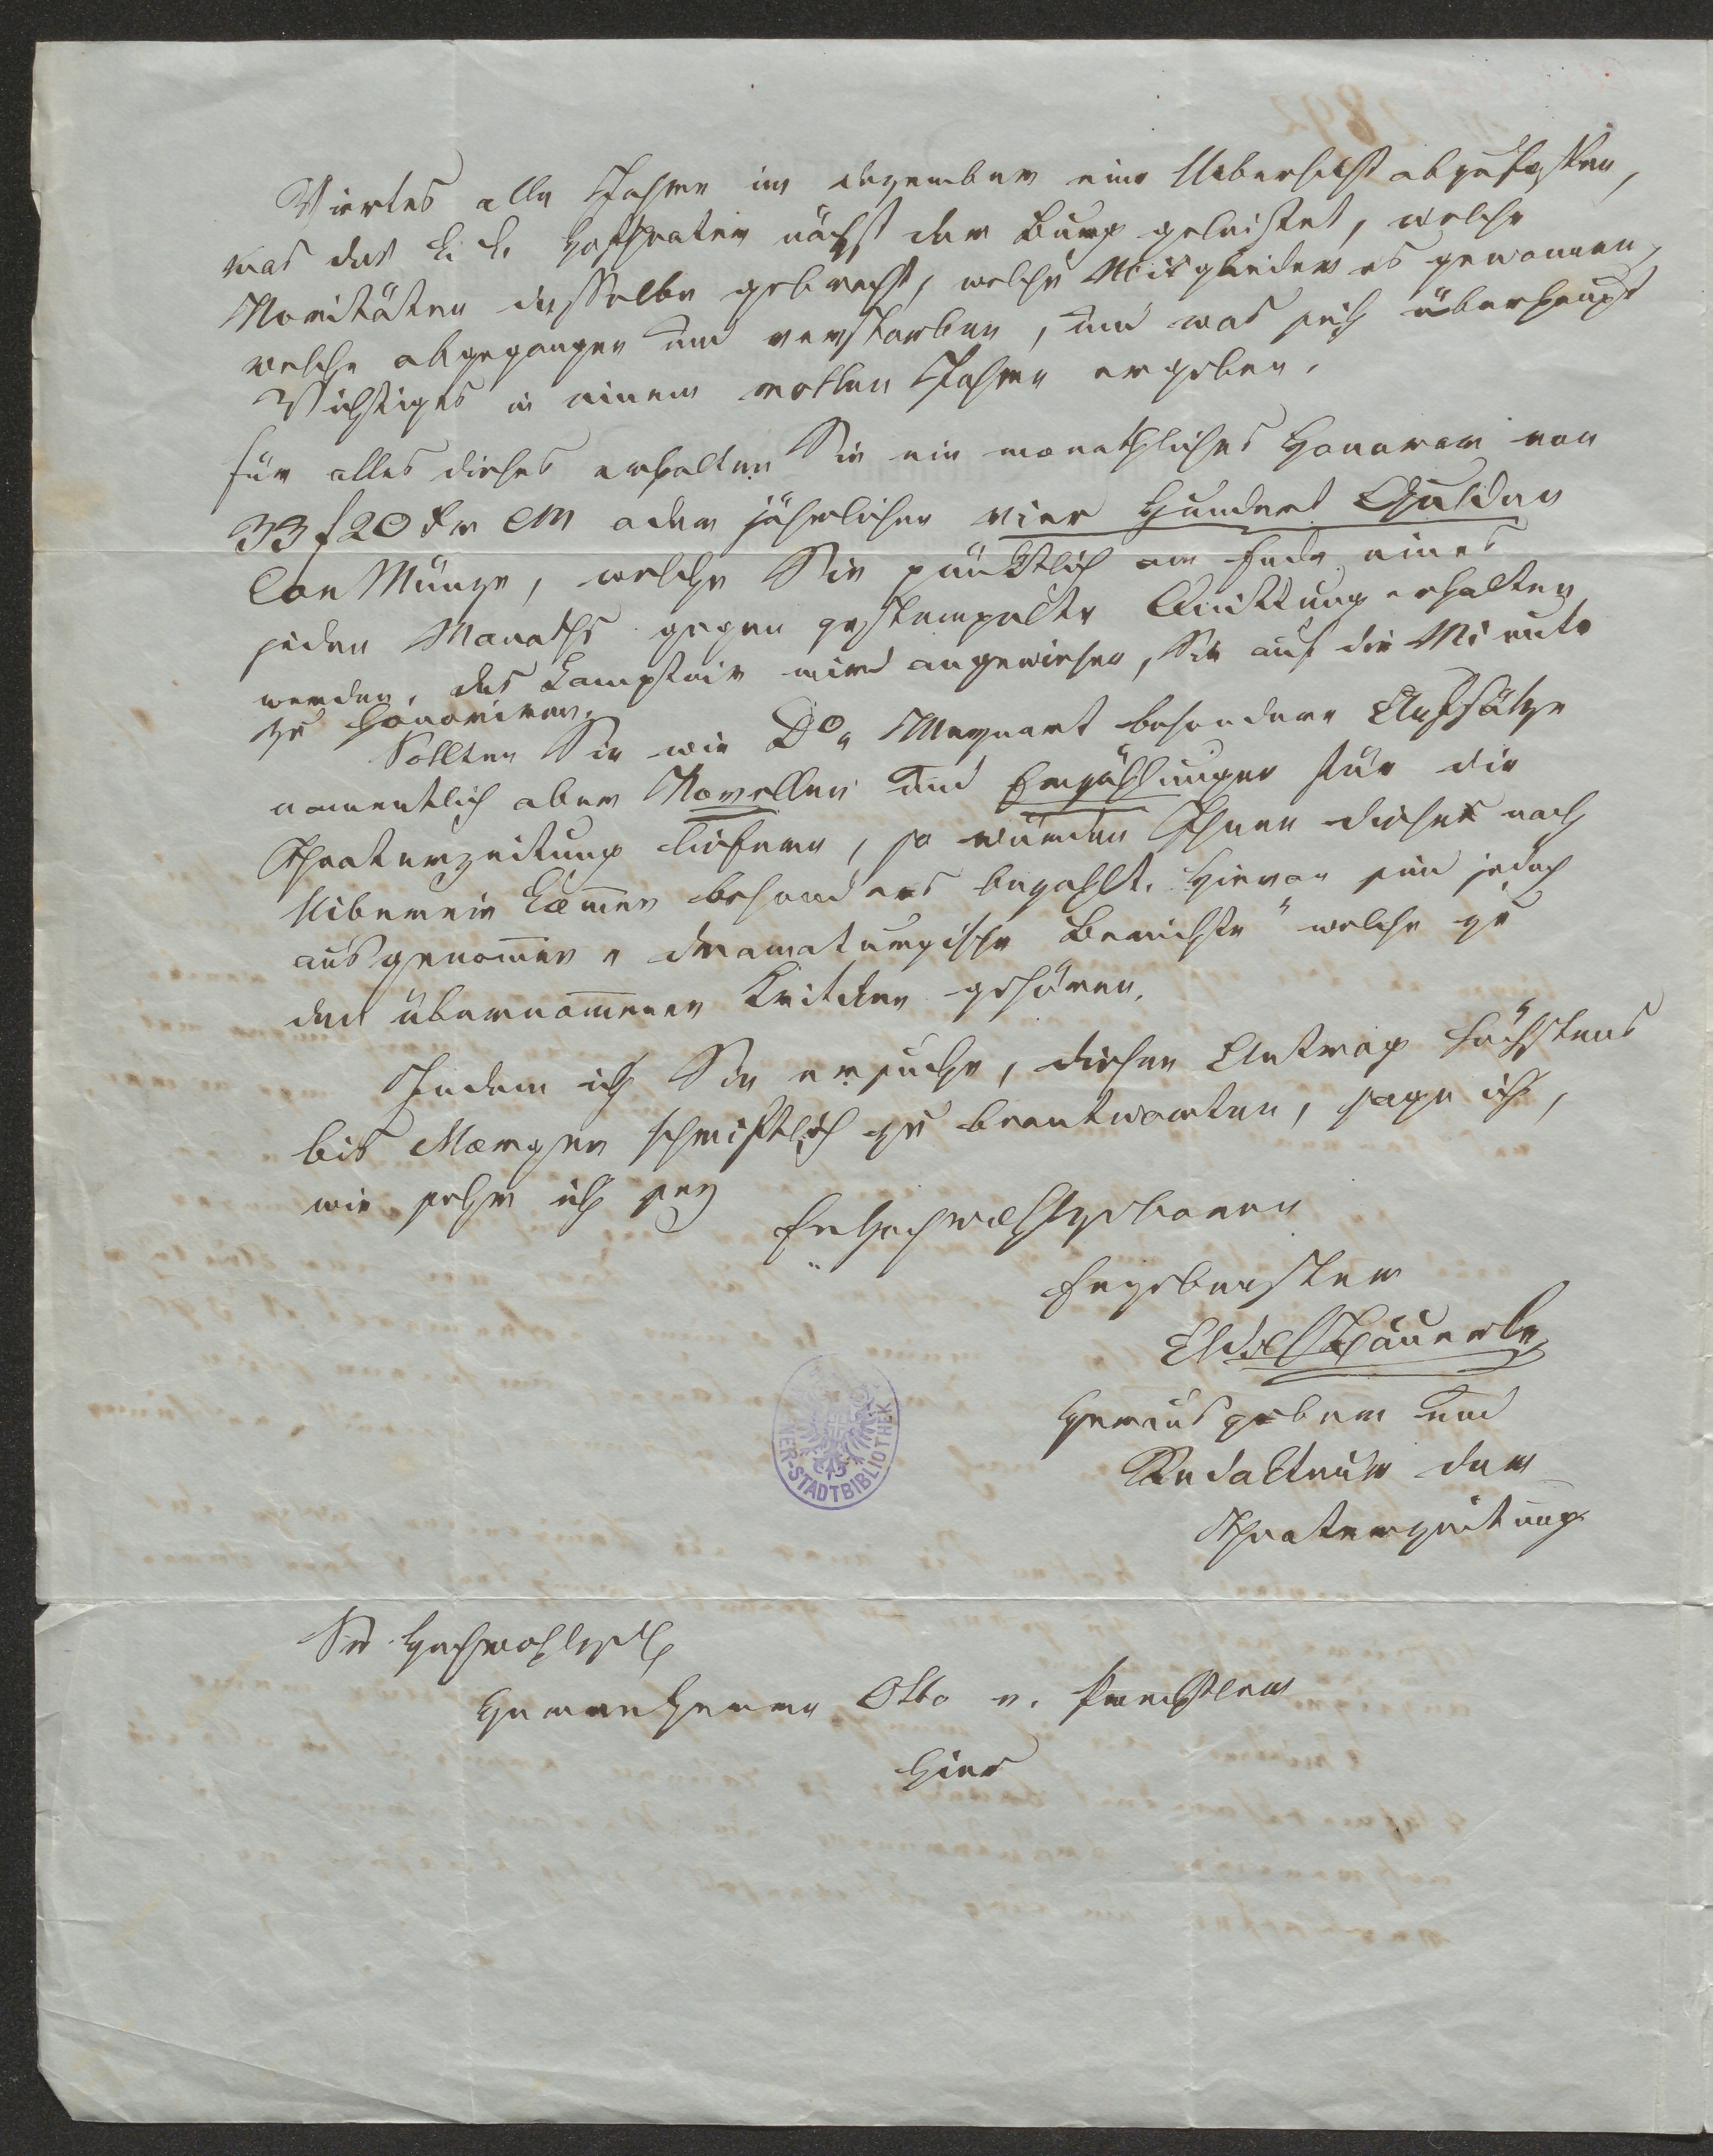 Viertes alle Jahre im dezember eine Uebersicht abzufassen,
was das k. k. Hoftheater nächst der Burg geleistet, welche
Novitäten dasselbe gebracht, welche Mitglieder es gewonnen,
welche abgegangen und verstorben, und was sich überhaupt
Wichtiges in einem vollen Jahre ergeben.
für alles dieses erhalten Sie ein monathliches Honorar von
33 f 20 Xr CM oder jährlicher vier Hundert Gulden
Con Münze, welche Sie pünktlich am Ende eines
jeden Monaths gegen gestempelte Quittung erhalten
werden. das Comptoir wird angewiesen, Sie auf die Minute
zu honoriren.
Sollten Sie wie Dr Meynert besondere Aufsätze
namentlich aber Novellen und Erzählungen für die
Theaterzeitung liefern, so würden Ihnen dieses nach
Uiberein kom̄en besonders bezahlt. Hievon sind jedoch
ausgenom̄en „dramaturgische Berichte" welche zu
den übernom̄enen Kritiken gehören.
Indem ich Sie ersuche, diesen Antrag höchstens
bis Morgen schriftlich zu beantworten, sage ich,
wie sehr ich sey
Er Hochwohlgeboren
Ergebenster
Adolf Bäuerle
Herausgeber und
Redakteur der
Theaterzeitung
NER-STADTBIBLIOTHEK
Sr Hochwohlgeb
Herren Herrn Otto v. Prechtler
Hier